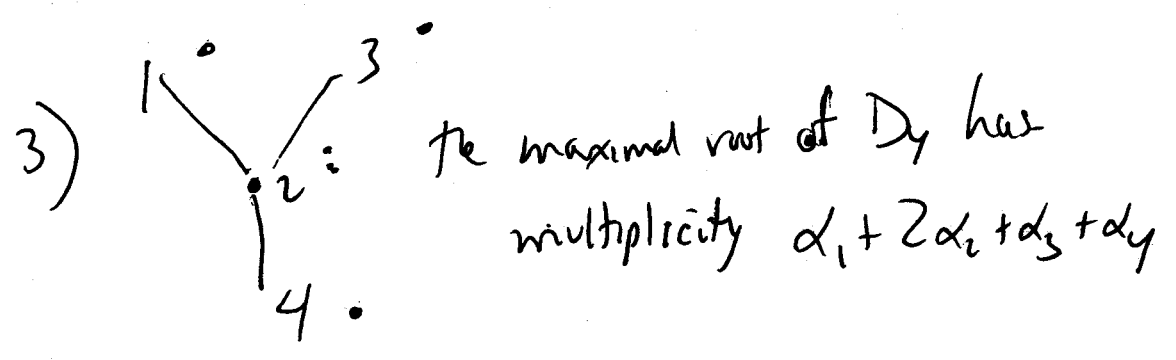 1 3
3) 2 the maximal root of D₄ has
multiplicity α₁ + 2α₂ + α₃ + α₄
4